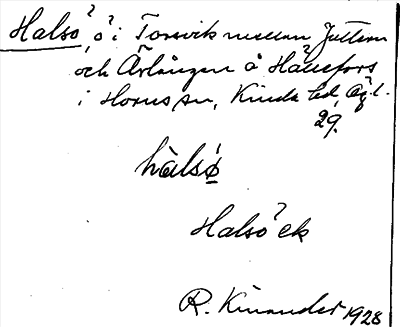 Halsö, ö i Torsvik mellan Juttern
och Ärlången å Hällefors
i Horns sn, Kinda hd, Ög.l.
29.
hàlsö
Halsö ek
R. Kinander 1928